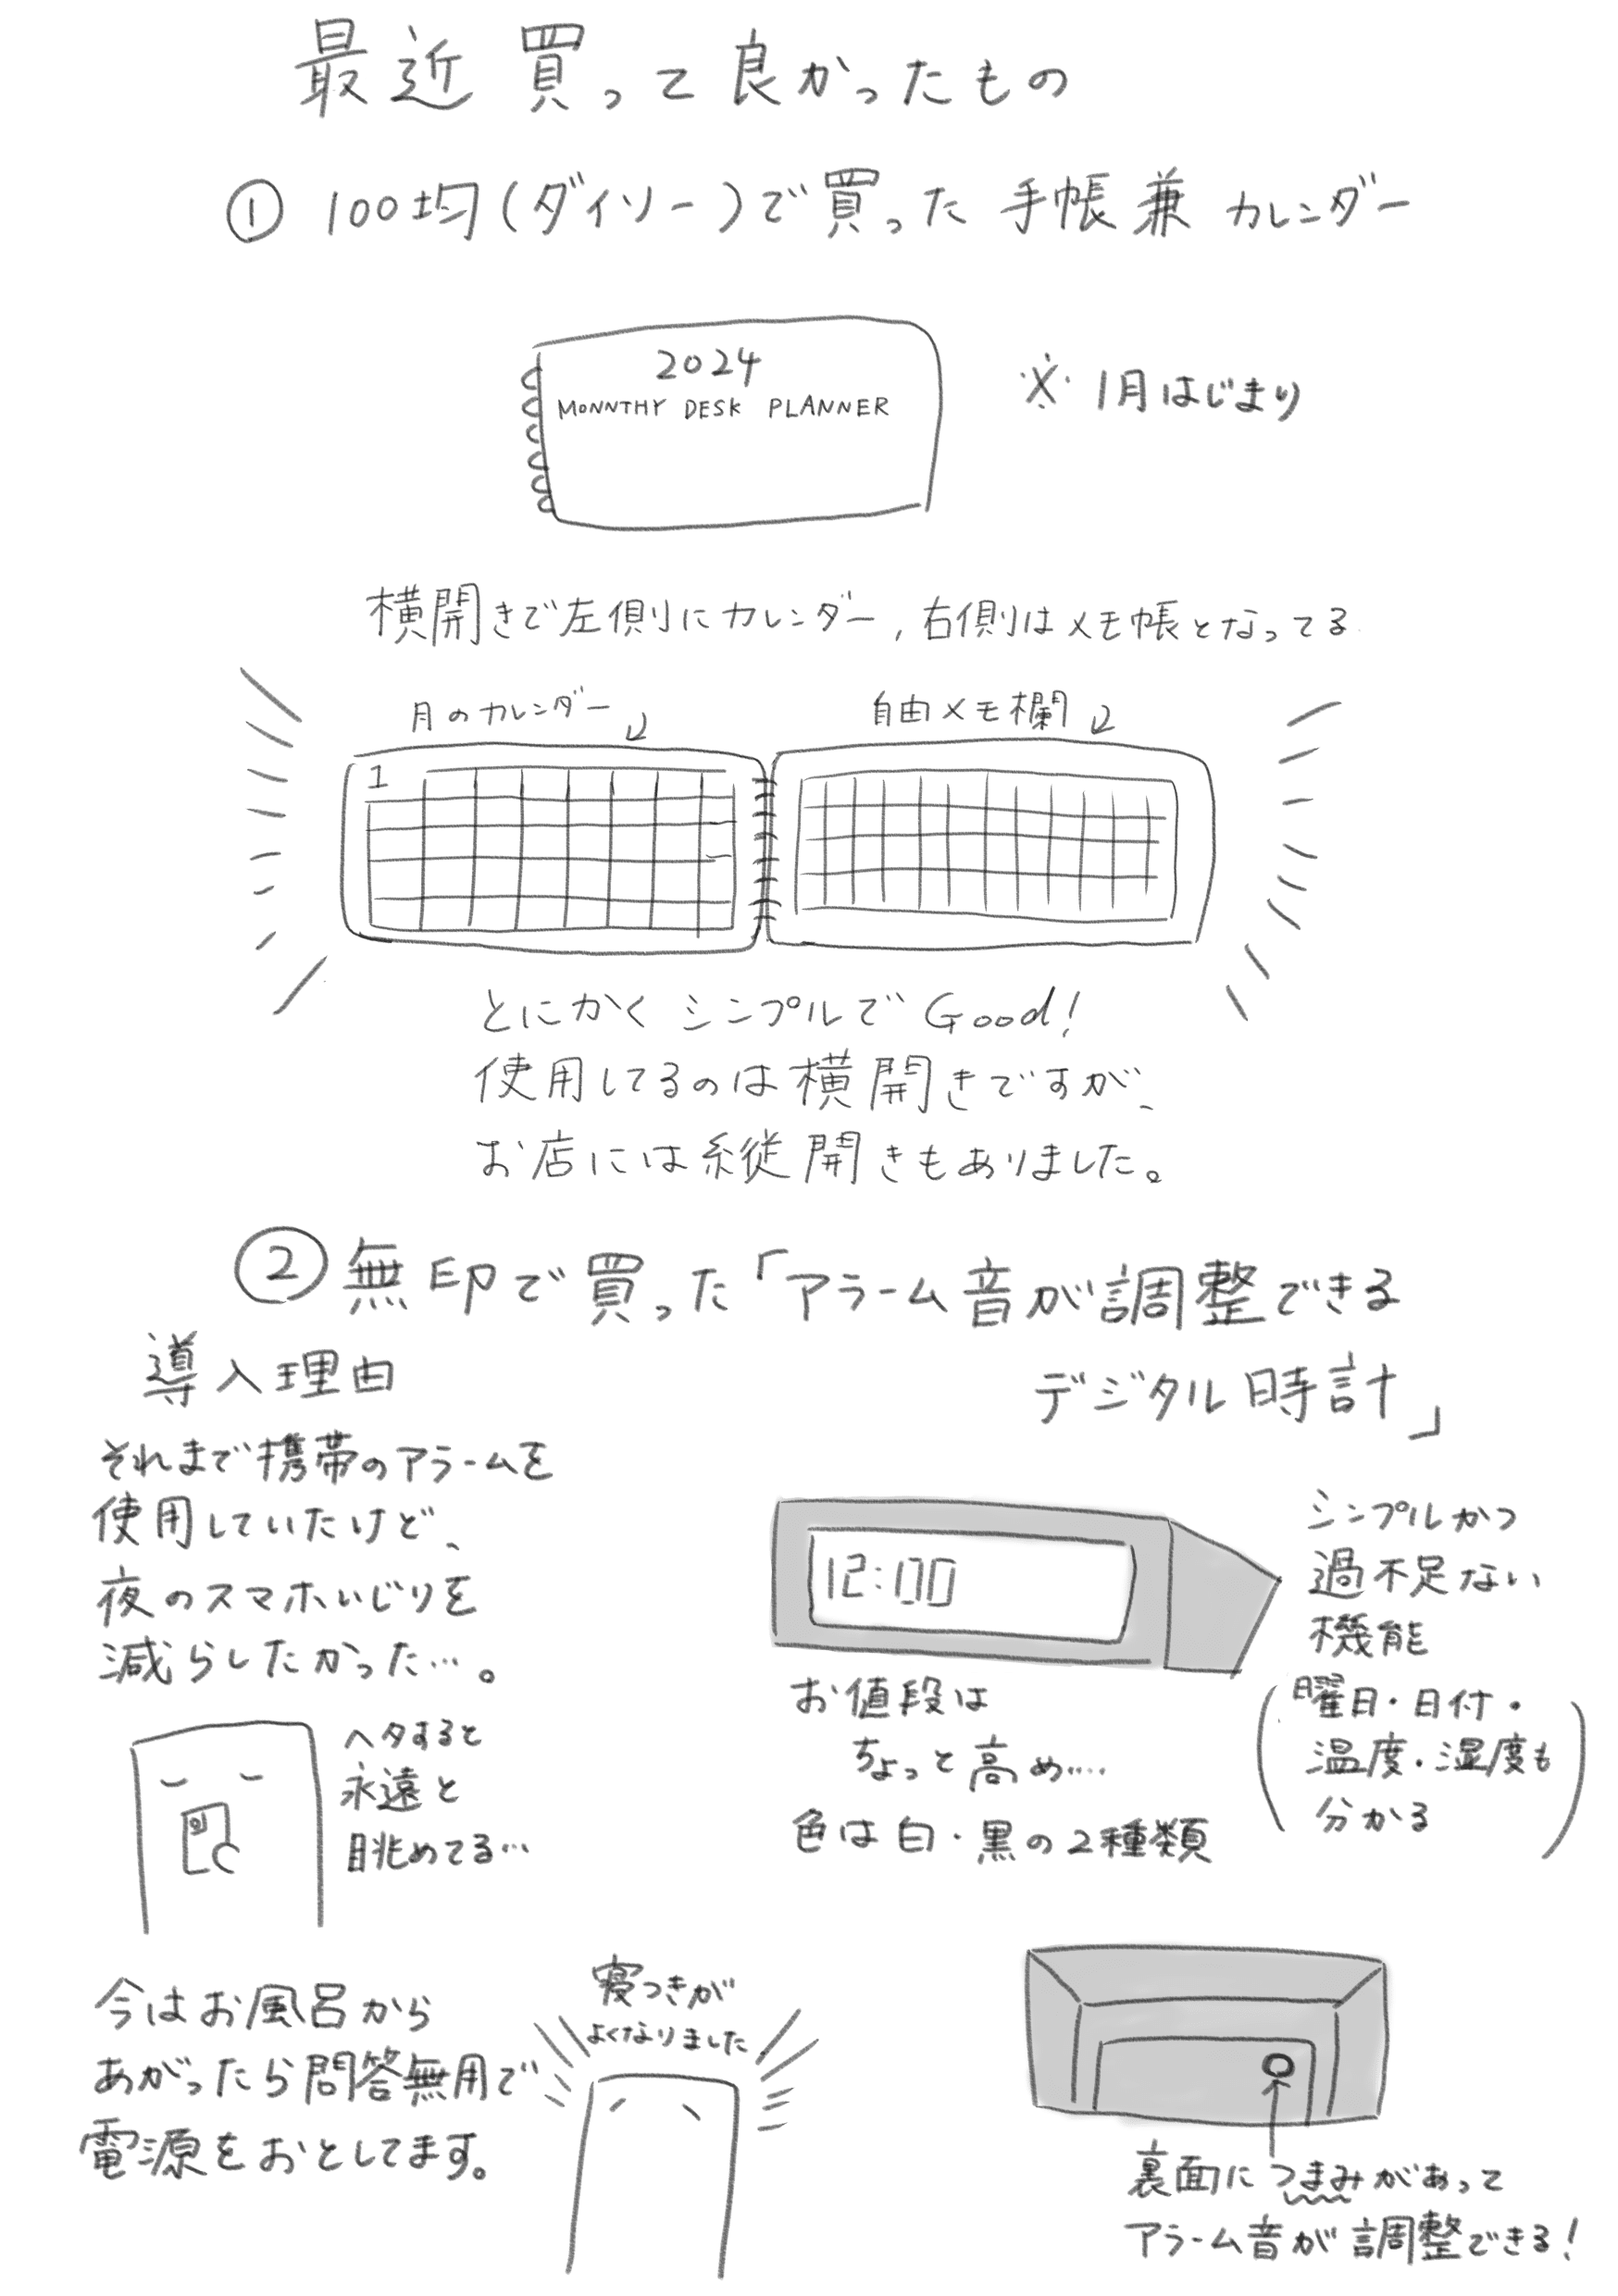 最近買って良かったもの
① 100均(ダイソー)で買った手帳兼カレンダー
2024
MONNTHY DESK PLANNER
※1月はじまり
横開きで左側にカレンダー,右側はメモ帳となってる
月のカレンダー
自由メモ欄
1
とにかくシンプルでGood!
使用してるのは横開きですが、
お店には縦開きもありました。
② 無印で買った「アラーム音が調整できる
デジタル時計」
導入理由
それまで携帯のアラームを
使用していたけど、
夜のスマホいじりを
減らしたかった…。
ヘタすると
永遠と
眺めてる…
12:00
シンプルかつ
過不足ない
機能
(曜日・日付・
温度・湿度も
分かる)
お値段は
ちょっと高め……
色は白・黒の2種類
今はお風呂から
あがったら問答無用で
電源をおとしてます。
寝つきが
よくなりました
裏面につまみがあって
アラーム音が調整できる!